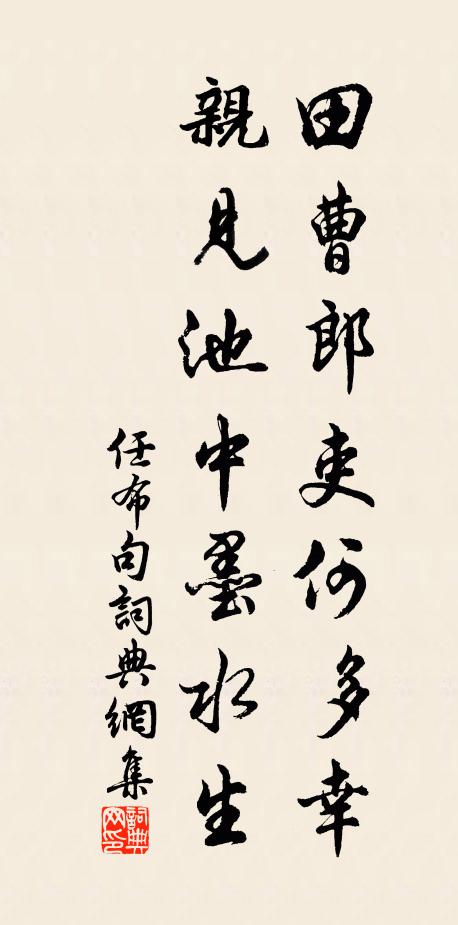 田曹郎吏何多幸
親見池中墨水生
任布句詞典網集
詞典
网印